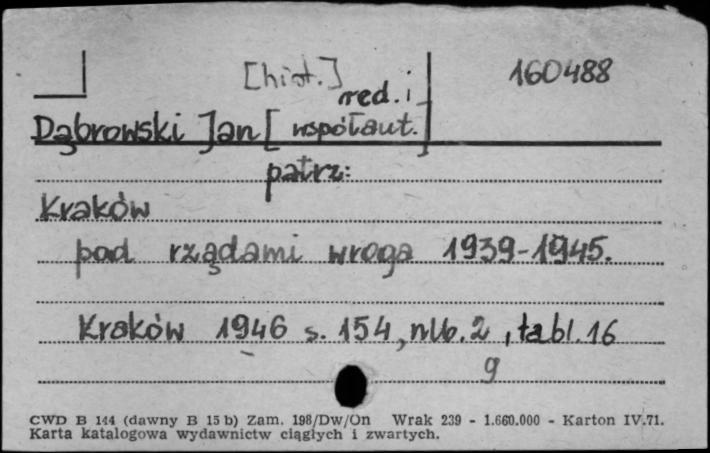 [hist.] 160488
red. i
Dąbrowski Jan [współaut.]
patrz:
Kraków
pod rządami wroga 1939-1945.
Kraków 1946 s. 154, nlb. 2, tabl. 16
g
CWD B 144 (dawny B 15 b) Zam. 198/Dw/On Wrak 239 - 1.660.000 - Karton IV.71.
Karta katalogowa wydawnictw ciągłych i zwartych.